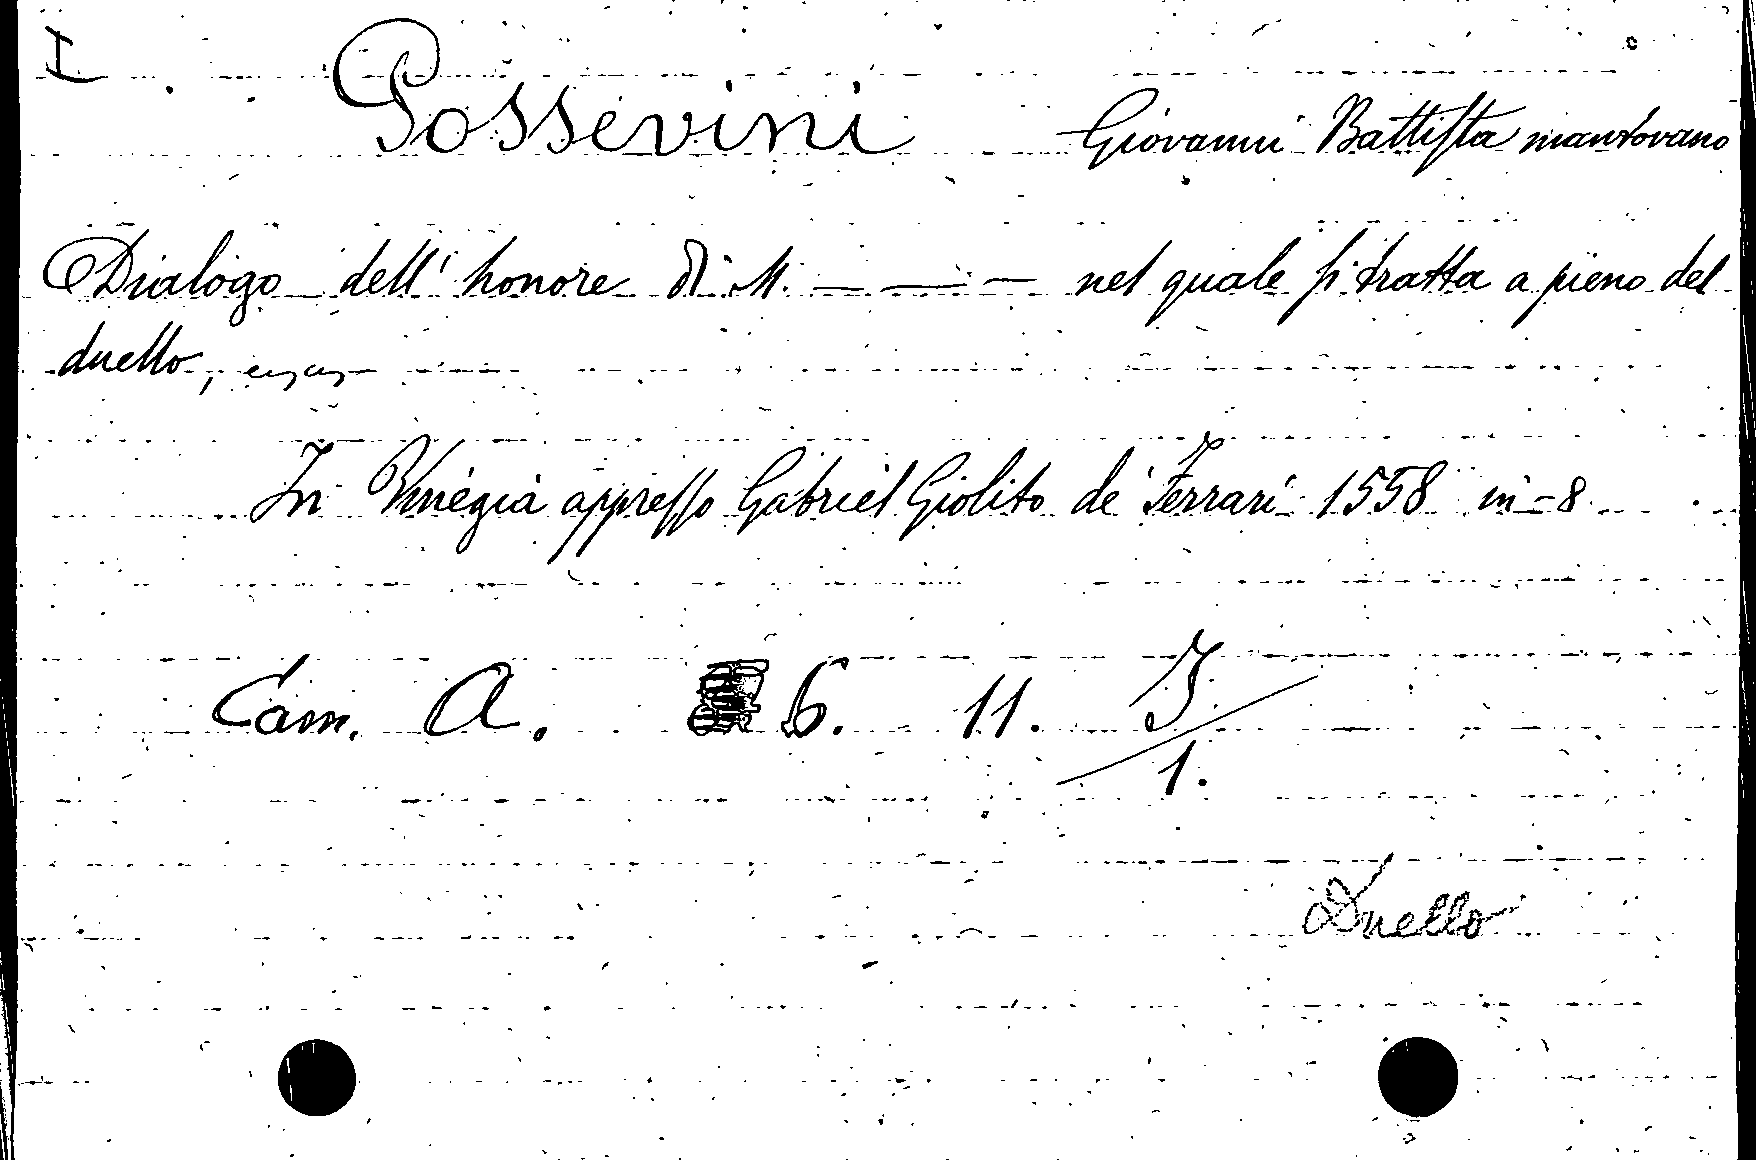 I
Possevini Giovanni Battiſta mantovano
Dialogo dell' honore di M. — — — nel quale ſi tratta a pieno del
duello,
In Vinegia appreſſo Gabriel Giolito de' Ferrari 1558 in-8.
Cam. A. 6. 11. I/1.
Duello